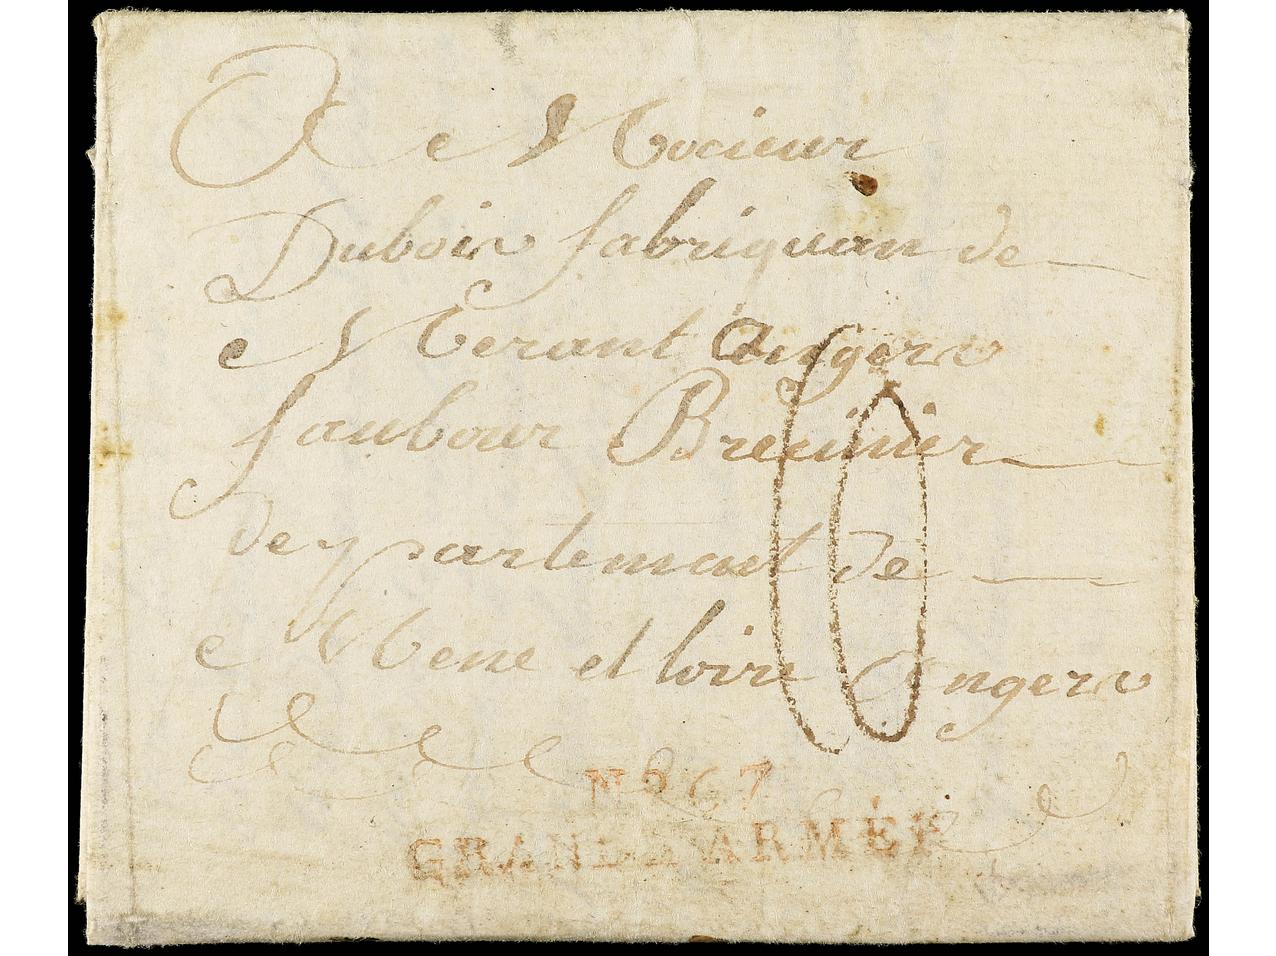 A Mocieur
Dubois fabriquan de
Merant Angers
faubour Breminer
departement de
Mene et loire Angers
No 67
GRANDE ARMÉE